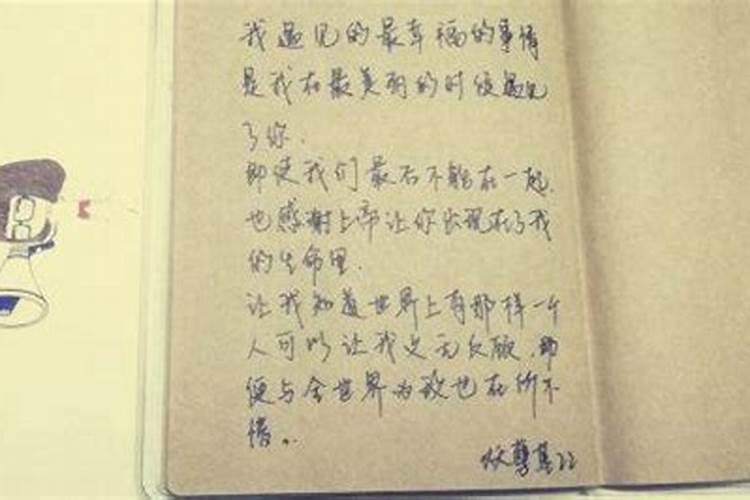 我遇见的最幸福的事情
是我在最美丽的时候遇见
了你.
即使我们最后不能在一起.
也感谢上帝让你出现在了我
的生命里.
让我知道世界上有那样一个
人可以让我义无反顾.即
便与全世界为敌也在所不
惜..